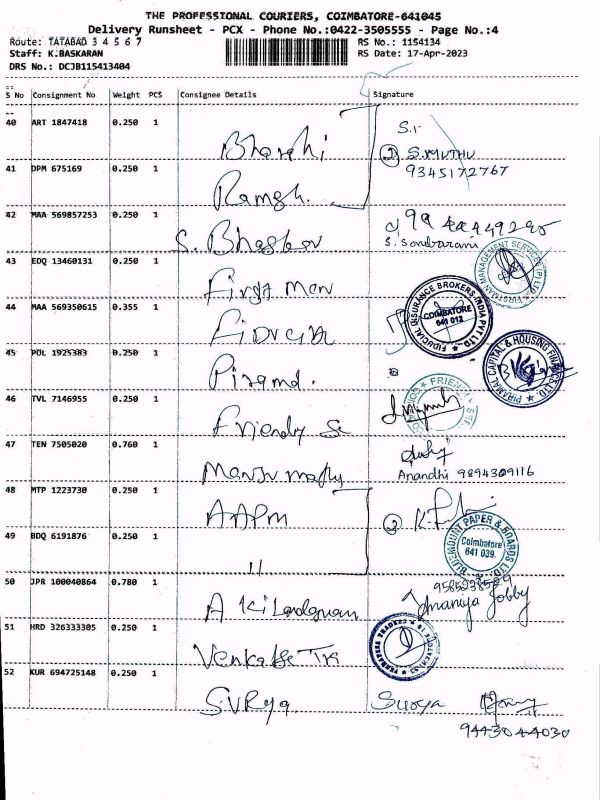 THE PROFESSIONAL COURIERS, COIMBATORE-641045
Delivery Runsheet - PCX - Phone No.:0422-3505555 - Page No.:4
Route: TATABAD 3 4 5 6 7
RS No.: 1154134
Staff: K.BASKARAN
RS Date: 17-Apr-2023
DRS No.: DCJB115413404
S No Consignment No Weight PCS Consignee Details Signature
40 ART 1847418 0.250 1
Bharathi
S.
2 S.MUTHU
9345172767
41 DPM 675169 0.250 1
Ramesh.
42 MAA 569857253 0.250 1
S. Bhaskar
S. Sondbarani
43 EDQ 13460131 0.250 1
First man
FIRSTMAN MANAGEMENT SERVICES (P) LTD
44 MAA 569350615 0.355 1
FIDUCIAL INSURANCE BROKERS INDIA PVT LTD
COIMBATORE
641 012
45 POL 1925383 0.250 1
Piramal.
PIRAMAL CAPITAL & HOUSING FINANCE LTD.
46 TVL 7146955 0.250 1
Friendly Se
47 TEN 7505020 0.760 1
Anandhi 9894309116
48 MTP 1223730 0.250 1
AAPM
2
BLUEMOUNT PAPER & BOARDS LTD
Coimbatore
641 039.
49 BDQ 6191876 0.250 1
"
50 JPR 100040864 0.780 1
Jobby
51 HRD 326333305 0.250 1
52 KUR 694725148 0.250 1
Surya
Surya
9443044030